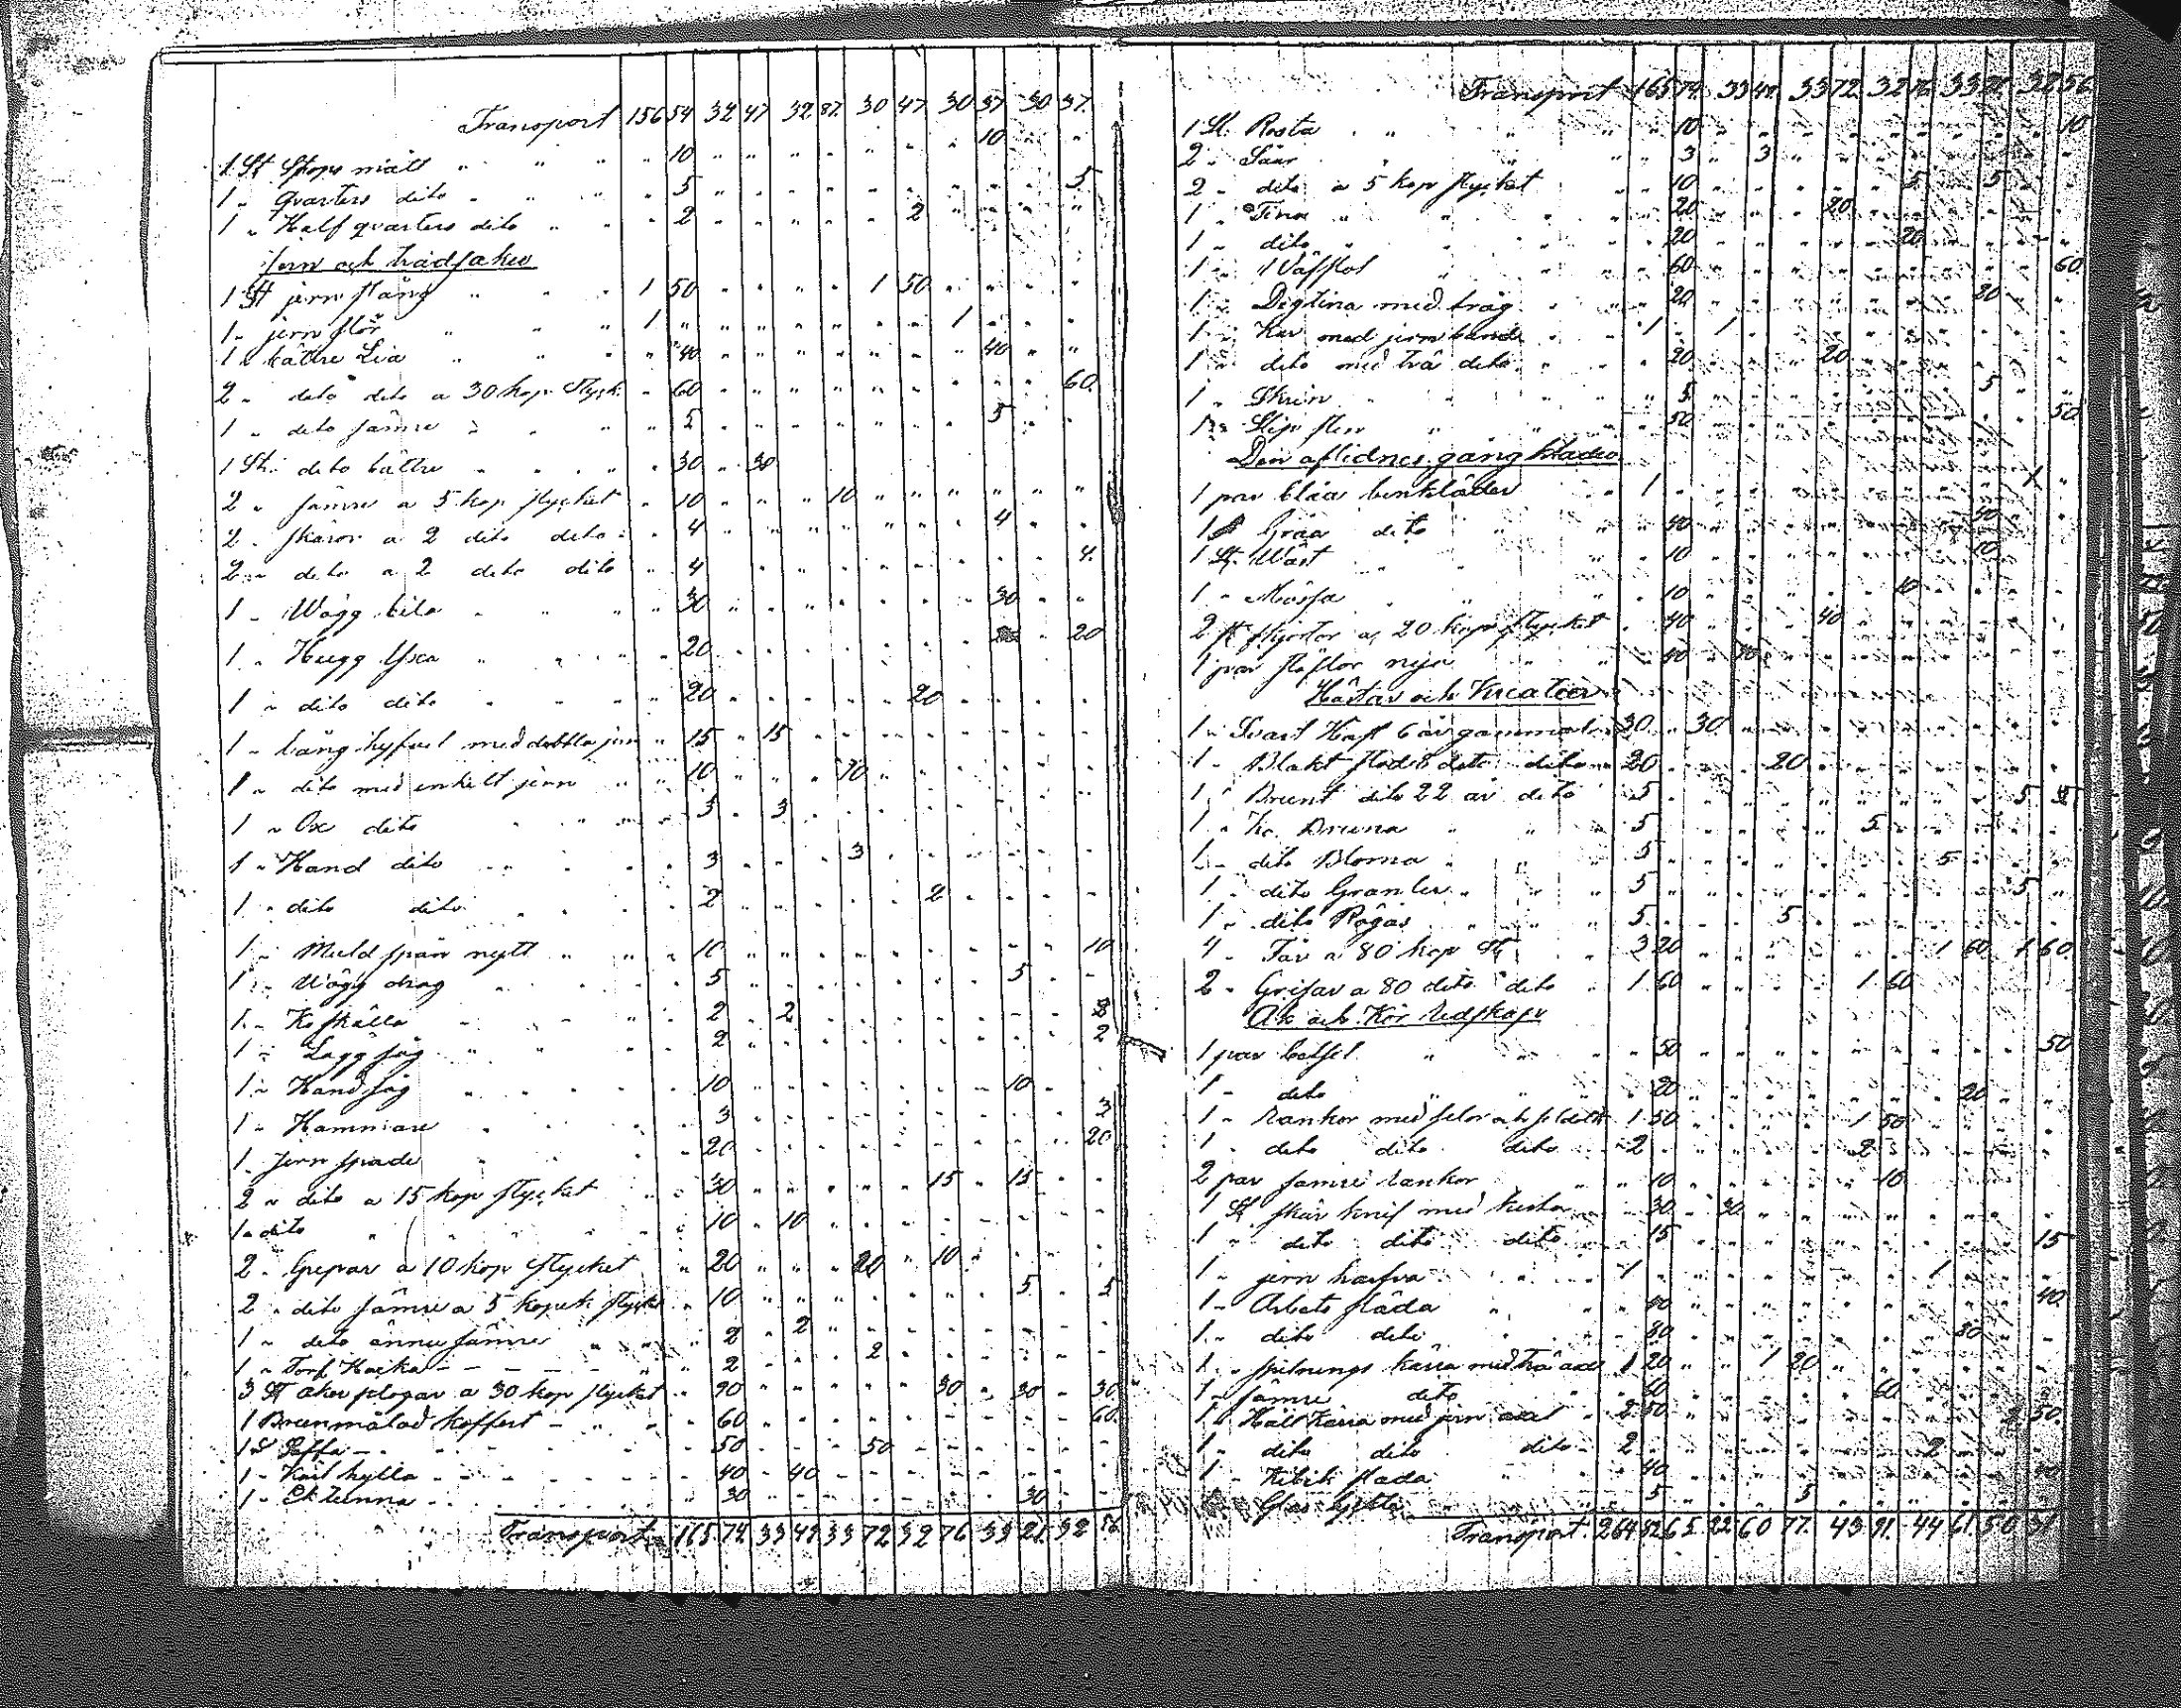 Transport 156 54 32 47 32 87 30 47 30 37 30 37
1 St Stops mått " " " " 10 10
1 " Qvarters dito " " 5 5
1 " Half qvarters dito " " 2 2
Jern och trädsaker
1 St jern stång " " " 1 50 1 50
1 " jern stör " " " 1 " 1
1 " bättre Lia " " " 40 40
2 " dito dito a 30 kop Styck. " 60 60
1 " dito sämre " " " 5 5
1 St. dito bättre " " " 30 30
2 " sämre a 5 kop stycket " 10 10
2 " skäror a 2 dito dito " 4 4
2 " dito a 2 dito dito " 4 4
1 " Wägg bila " " " 30 30
1 " Hugg Yxa " " " 20 20
1 " dito dito " " " 20 20
1 " lång hyfvel med dobbla jern " 15 15
1 " dito med enkelt jern " " 10 10
1 " Ox dito " " " 3 3
1 " Hand dito " " " 3 3
1 " dito dito " " " 2 2
1 " Muld span nytt " " " 10 10
1 " Wägg drag " " " 5 5
1 " Koskälla " " " 2 2
1 " Lagg såg " " " 2 2
1 " Hand såg " " " 10 10
1 " Hammare " " " 3 3
1 " Jern spade " " " 20 20
2 " dito a 15 kop stycket " " 30 15 15
1 " dito " " " 10 10
2 " Grepar a 10 kop stycket " 20 20 10
2 " dito sämre a 5 kopek stycket " 10 5 5
1 " dito ännu sämre " " 2 2
1 " Torf Hacka - - - - 2 2
3 St åker plogar a 30 kop stycket " 90 30 30 30
1 Brunmålad koffert - " 60 60
1 St Soffa - - 50 50
1 " hylla - - - 40 40
1 " Ektunna - - 30 30
Transport 165 74 33 49 33 72 32 76 33 21 32 56
Transport 165 74 33 49 33 72 32 76 33 21 32 56
1 St. Rosta " " " 10 10
2 " Såar " " " 3 3
2 " dito a 5 kop stycket " 10 5 5
1 " Tina " " " 20 20
1 " dito " " " 20 20
1 " Wäfstol " " " 60 60
1 " Degtina med tråg " " 20 20
1 " Kar med jern band " 1 1
1 " dito med trä dito " " 20 20
1 " Skrin " " " 5 5
1 " Slip sten " " " 50 50
Den aflidnes gång kläder
1 par blåa benkläder " 1 1
1 " Gråa dito " " 40 40
1 St. Wäst " " 10 10
1 " Mössa " " 10 10
2 St skjortor a 20 kop stycket " 40 40
1 par stöflor nya " " 40
Hästar och Kreatur
1 " Svart Häst 6 år gammal " 30 30
1 " Blakt Stod 8 dito dito " 20 20
1 " Brunt dito 22 år dito 5 5
1 " Ko Bruna " " 5 5
1 " dito Bloma " " 5 5
1 " dito " " 5 5
1 " dito Rögås " " 5 5
4 " Får a 80 kop St " 3 20 1 60 1 60
2 " Grisar a 80 dito dito " 1 60 1 60
Åk och Kör redskap
1 par betsel " " " 50 50
1 " dito " " " 20 20
1 " rankor med selor och 1 50 1 50
1 " dito dito dito " 2 2
2 par sämre rankor " " 10 10
1 St skär knif med kista " 30 30
1 " dito dito dito " 15 15
1 " jern harfva " " 1 1
1 " Arbets släda " " 40 40
1 " dito dito " " 80 80
1 " kärra med trä axel 1 20 1 20
1 " sämre dito " " 60 60
1 " Håll Kärra med jern axel " 2 50 2 50
1 " dito dito dito - 2 2
1 " släda " " 40 40
5 5
Transport 264 52 65 22 60 77 43 91 44 61 50 31